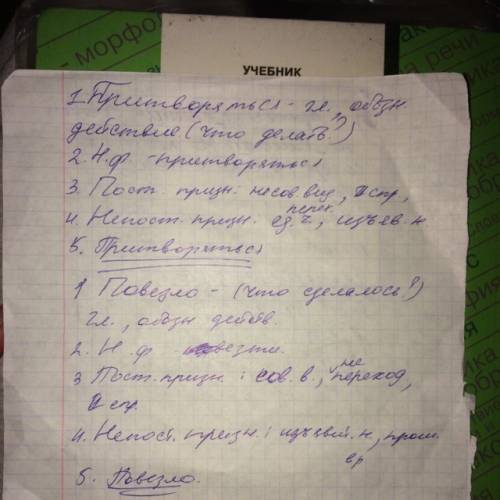 морфо
УЧЕБНИК
речи
1. Притворяться - гл., обозн.
действие (что делать?)
2. Н.ф. - притворяться
3. Пост. призн.: несов. вид, II спр.,
перех.
4. Непост. призн. ед. ч., изъяв. н
5. Притворяться
1 Повезло - (что сделалось?)
гл., обозн действ.
2. Н. ф везти.
3 Пост. призн. : сов. в., не переход,
II спр.
4. Непост. призн. : изъяви. н, прош.
вр
5. Повезло.